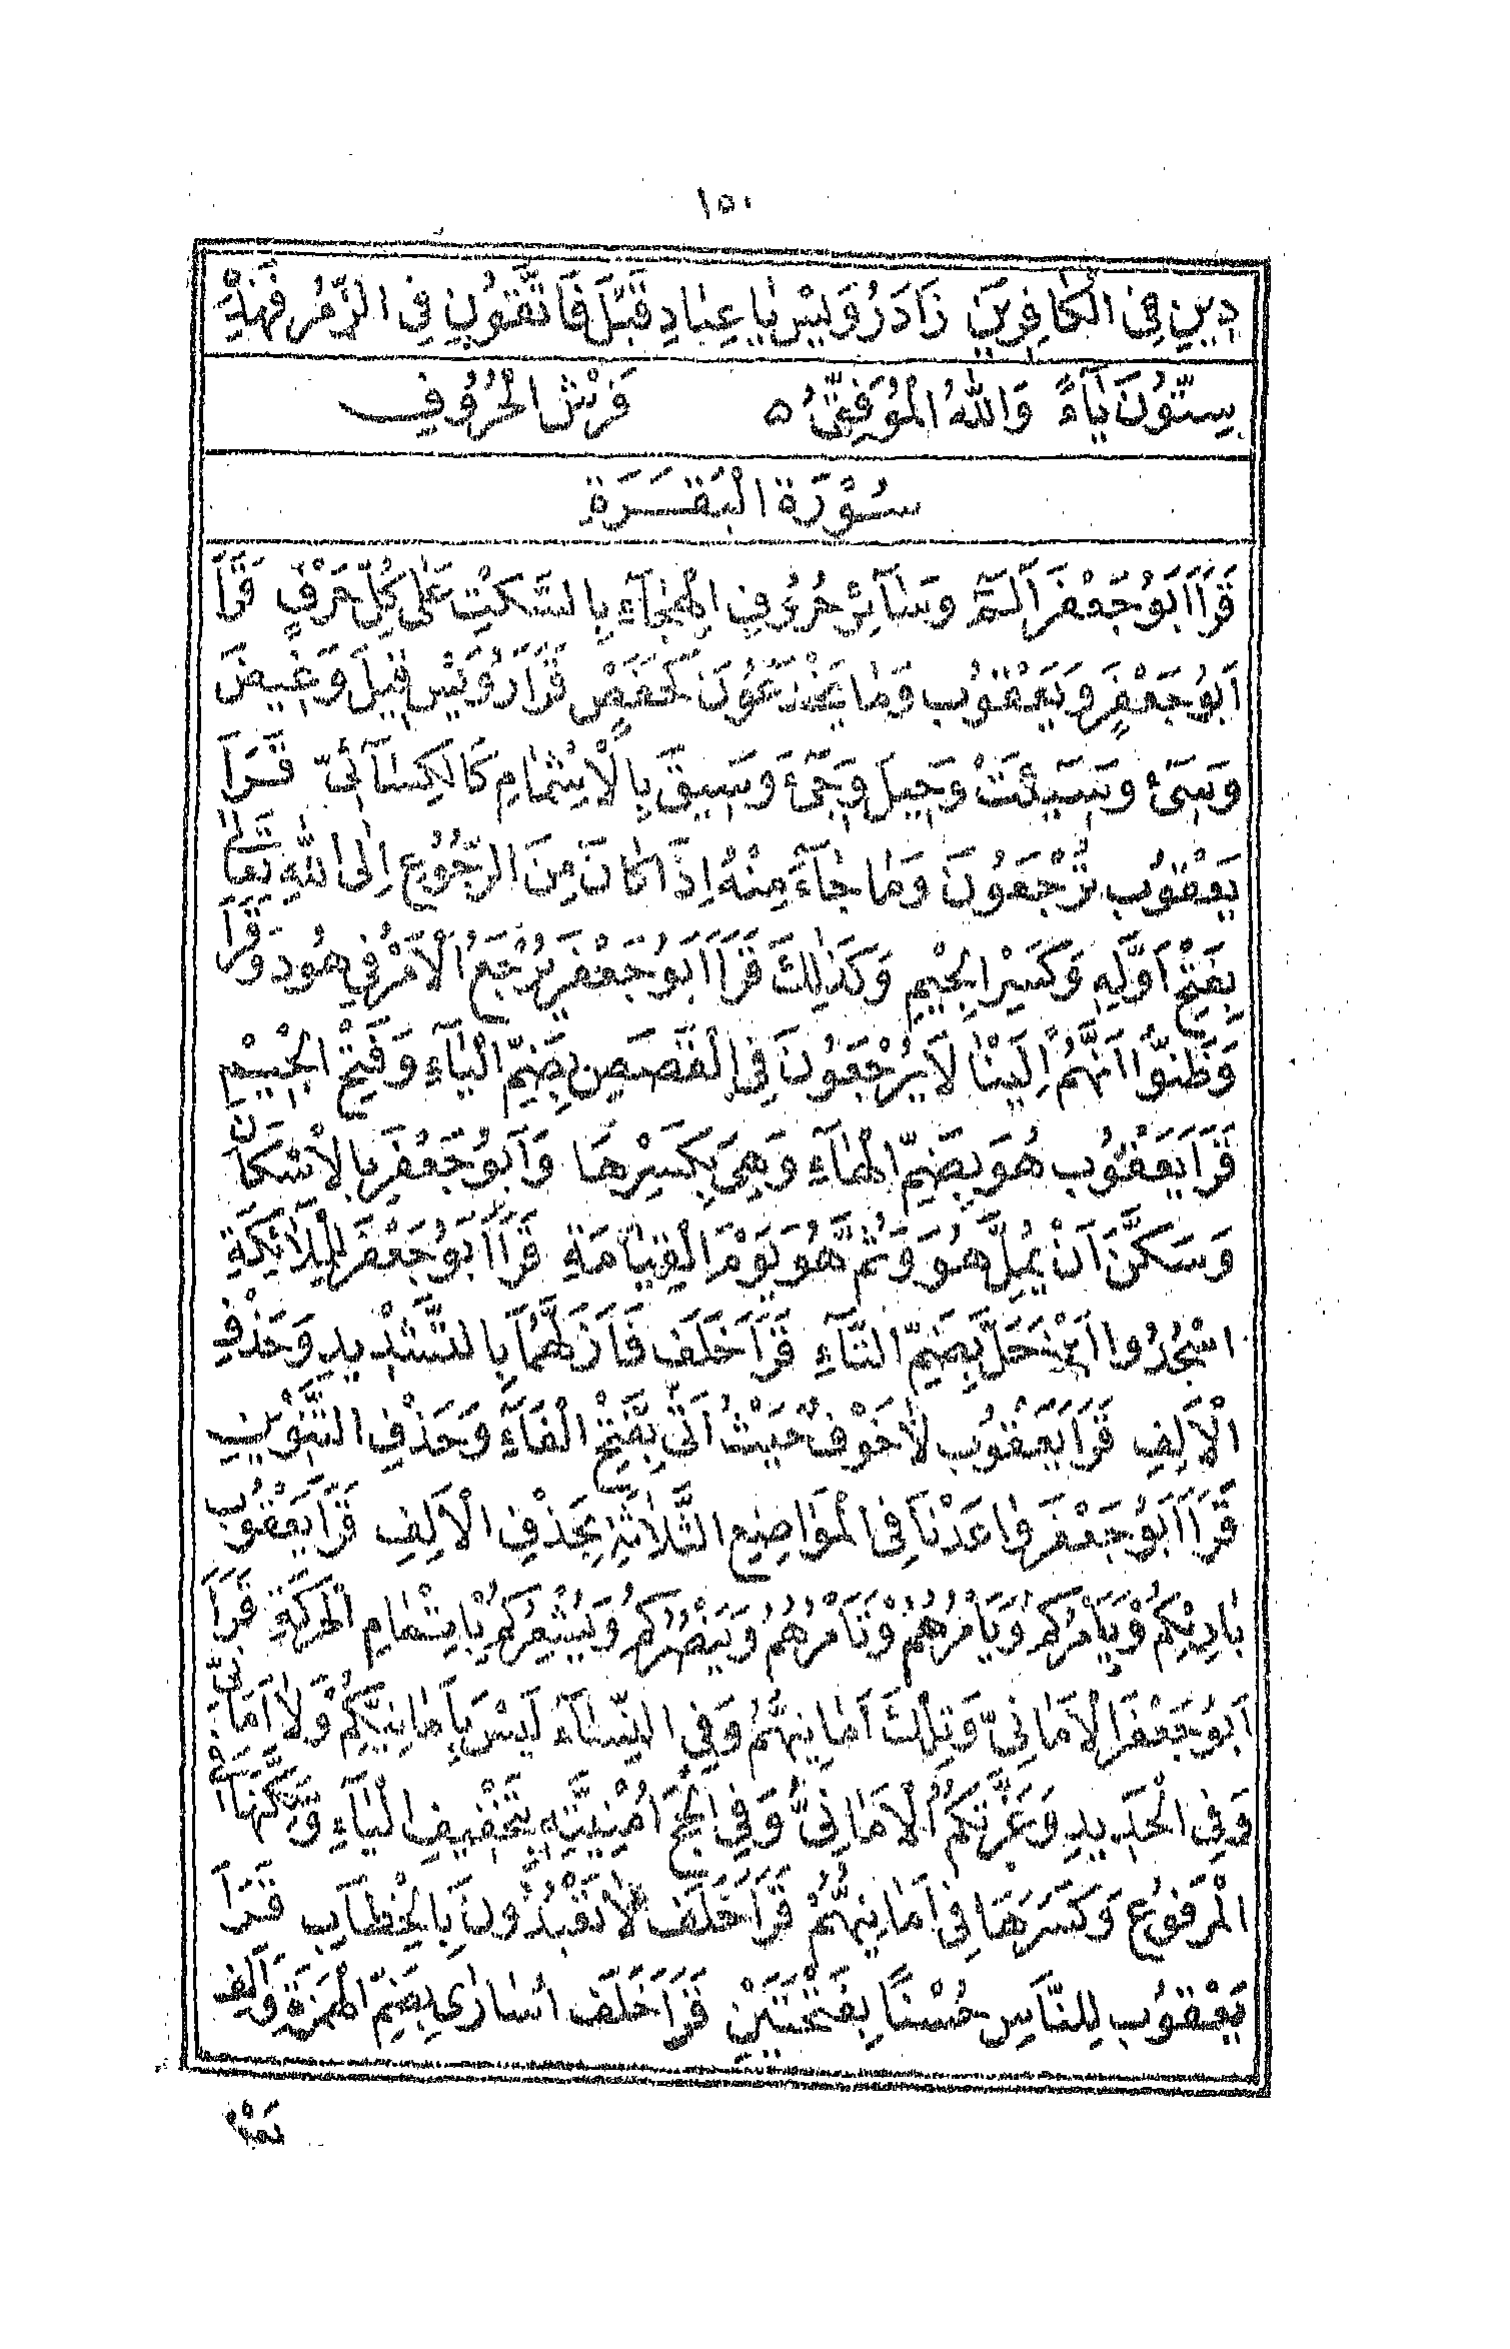 ١٥٠
دِينِ فِي الْكَافِرِينَ زَادَ رُوَيْس يَا عِبَادِ قَبْلَ فَاتَّقُونِ فِي الزُّمَرِ فَهٰذِهِ
سِتُّونَ يَآءً وَاللهُ الْمُوَفِّقُ ٥ فَرْشُ الْحُرُوفِ
سُوْرَةُ الْبَقَرَةِ
قَرَأَ أَبُو جَعْفَرَ آلٓمٓ وَسَآئِرَ حُرُوفِ الْهِجَآءِ بِالسَّكْتِ عَلٰى كُلِّ حَرْفٍ قَرَأَ
اَبُو جَعْفَرٍ وَيَعْقُوبُ وَمَا يَخْدَعُونَ كَحَفْصٍ قَرَأَ رُوَيْس قِيلَ وَغِيضَ
وَسِيٓءَ وَسِيٓئَتْ وَحِيلَ وَجِيٓءَ وَسِيقَ بِالْاِشْمَامِ كَالْكِسَآئِيّ قَرَأَ
يَعْقُوبُ تُرْجَعُونَ وَمَا جَآءَ مِنْهُ اِذَا كَانَ مِنَ الرُّجُوعِ اِلَى اللهِ تَعَالٰى
بِفَتْحِ اَوَّلِهِ وَكَسْرِ الْجِيمِ وَكَذٰلِكَ قَرَأَ أَبُو جَعْفَرَ يُرْجَعُ الْاَمْرُ فِي هُودَ وَقَرَأَ
وَظَنُّوا اَنَّهُمْ اِلَيْنَا لَا يُرْجَعُونَ فِي الْقَصَصِ بِضَمِّ الْيَآءِ وَفَتْحِ الْجِيْمِ
قَرَأَ يَعْقُوبُ هُوَ بِضَمِّ الْهَآءِ وَهِيَ بِكَسْرِهَا وَاَبُو جَعْفَرَ بِالْاِسْكَانِ
وَسَكَّنَ اَنْ يُمِلَّ هُوَ وَثُمَّ هُوَ يَوْمَ الْقِيَامَةِ قَرَأَ أَبُو جَعْفَرَ لِلْمَلَآئِكَةِ
اسْجُدُوا اَيْنَ حَلَّ بِضَمِّ التَّآءِ قَرَأَ خَلَف فَاَزَلَّهُمَا بِالتَّشْدِيدِ وَحَذْفِ
الْاَلِفِ قَرَأَ يَعْقُوبُ لَا خَوْفَ حَيْثُ اَتٰى بِفَتْحِ الْفَآءِ وَحَذْفِ التَّنْوِينِ
قَرَأَ أَبُو جَعْفَرَ وَاعَدْنَا فِي الْمَوَاضِعِ الثَّلَاثَةِ بِحَذْفِ الْاَلِفِ قَرَأَ يَعْقُوبُ
بَارِئِكُمْ وَيَأْمُرُكُمْ وَيَأْمُرُهُمْ وَتَأْمُرُهُمْ وَيَنْصُرُكُمْ وَيُشْعِرُكُمْ بِاِتْمَامِ الْحَرَكَةِ قَرَأَ
اَبُو جَعْفَرَ الْاَمَانِيَ وَتِلْكَ اَمَانِيْهُمْ وَفِي النِّسَآءِ لَيْسَ بِاَمَانِيْكُمْ وَلَا اَمَانِيْ
وَفِي الْحَدِيدِ وَغَرَّتْكُمُ الْاَمَانِيُّ وَفِي الْحَجِّ اُمْنِيَّتِهِ بِتَخْفِيفِ الْيَآءِ وَسَكَّنَهَا
الْمَرْفُوعِ وَكَسَرَ هَا فِي اَمَانِيهِمْ قَرَأَ خَلَف لَا تَعْبُدُونَ بِالْخِطَابِ قَرَأَ
يَعْقُوبُ لِلنَّاسِ حُسْنًا بِفَتْحَتَيْنِ قَرَأَ خَلَف اُسَارٰى بِضَمِّ الْهَمْزَةِ وَاَلِفٍ